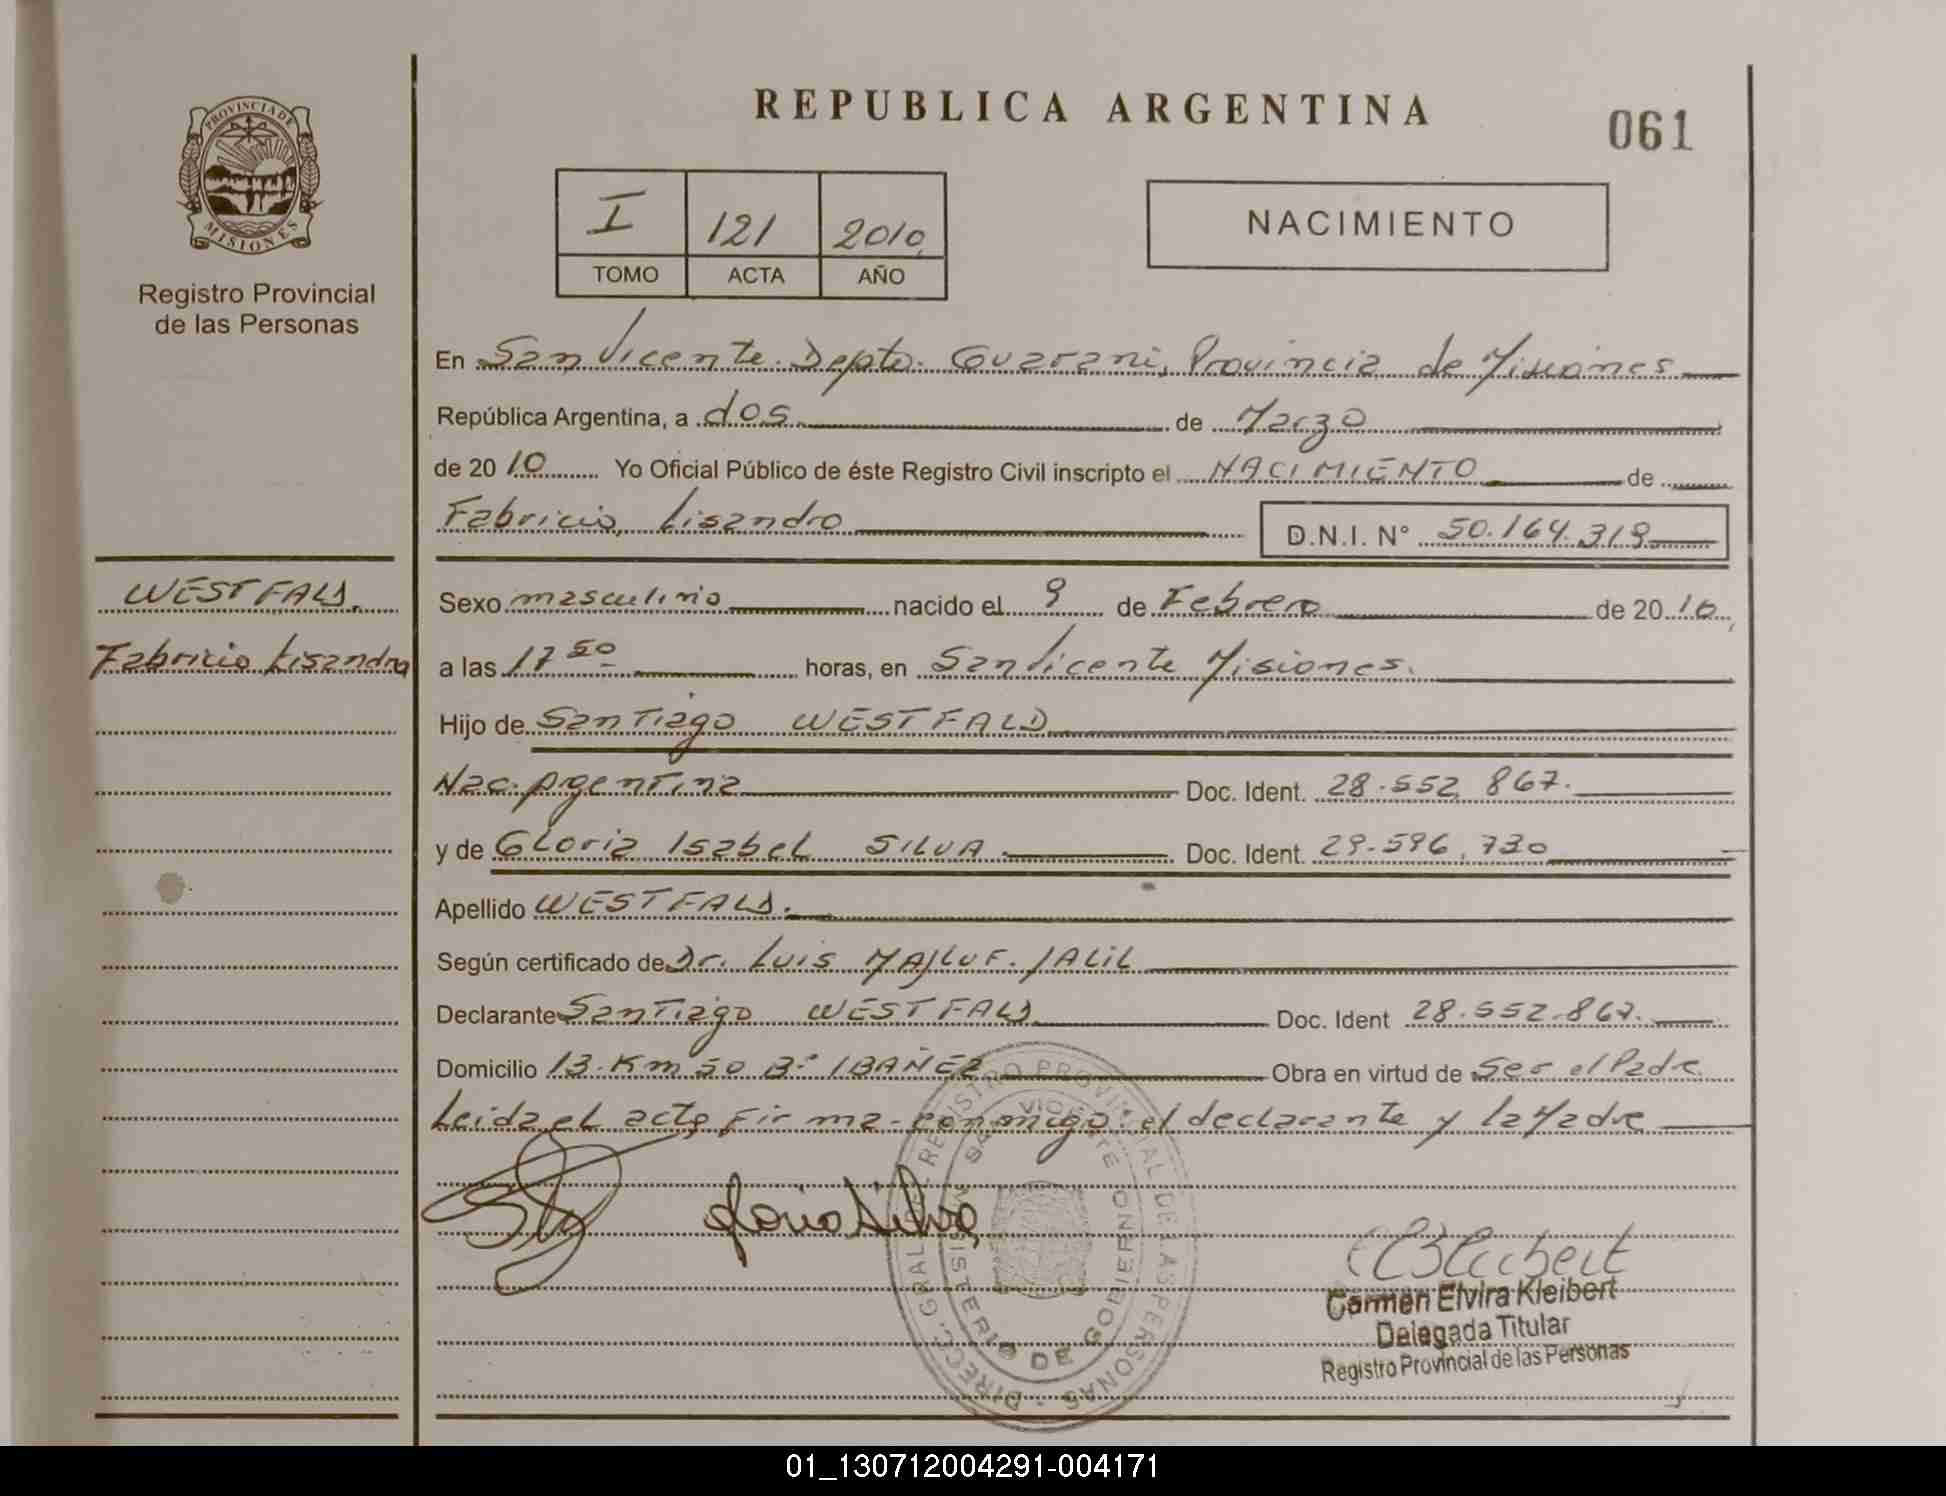 REPUBLICA ARGENTINA
061
PROVINCIA DE
MISIONES
Registro Provincial
de las Personas
I 121 2010
TOMO ACTA AÑO
NACIMIENTO
En San Vicente Depto. Guarani, Provincia de Misiones
República Argentina, a dos de Marzo
de 20 10 Yo Oficial Público de éste Registro Civil inscripto el NACIMIENTO de
Fabricio, Lisandro
D.N.I. N° 50.164.319
WESTFALD.
Fabricio Lisandro
Sexo masculino nacido el 9 de Febrero de 20 10
a las 17 50 horas, en San Vicente Misiones.
Hijo de Santiago WESTFALD
Nac. Argentina Doc. Ident. 28.552.867.
y de Gloria Isabel SILVA Doc. Ident. 29.596.730
Apellido WESTFALD.
Según certificado de Dr. Luis MAJLUF. JALIL
Declarante Santiago WESTFALD Doc. Ident 28.552.867.
Domicilio 13. Km 50 B° IBAÑEZ Obra en virtud de Ser el Padre
Leida el acta, Firma conmigo el declarante y la Madre
Gloria Silva
DIREC. GRAL. DEL REGISTRO PROVINCIAL DE LAS PERSONAS
SAN VICENTE
MINISTERIO DE GOBIERNO
CEKleibert
Carmen Elvira Kleibert
Delegada Titular
Registro Provincial de las Personas
01_130712004291-004171